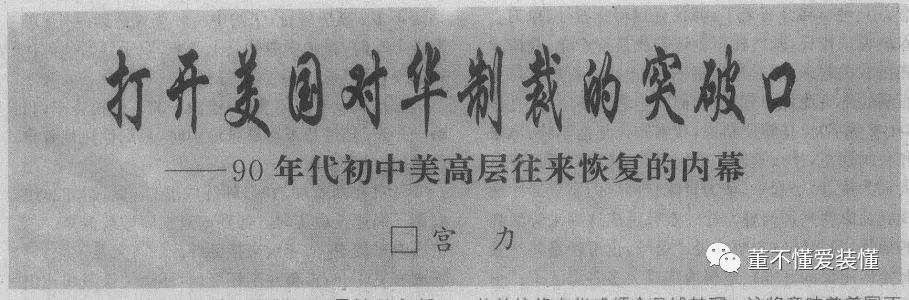 打开美国对华制裁的突破口
——90年代初中美高层往来恢复的内幕
□宫 力
董不懂爱装懂